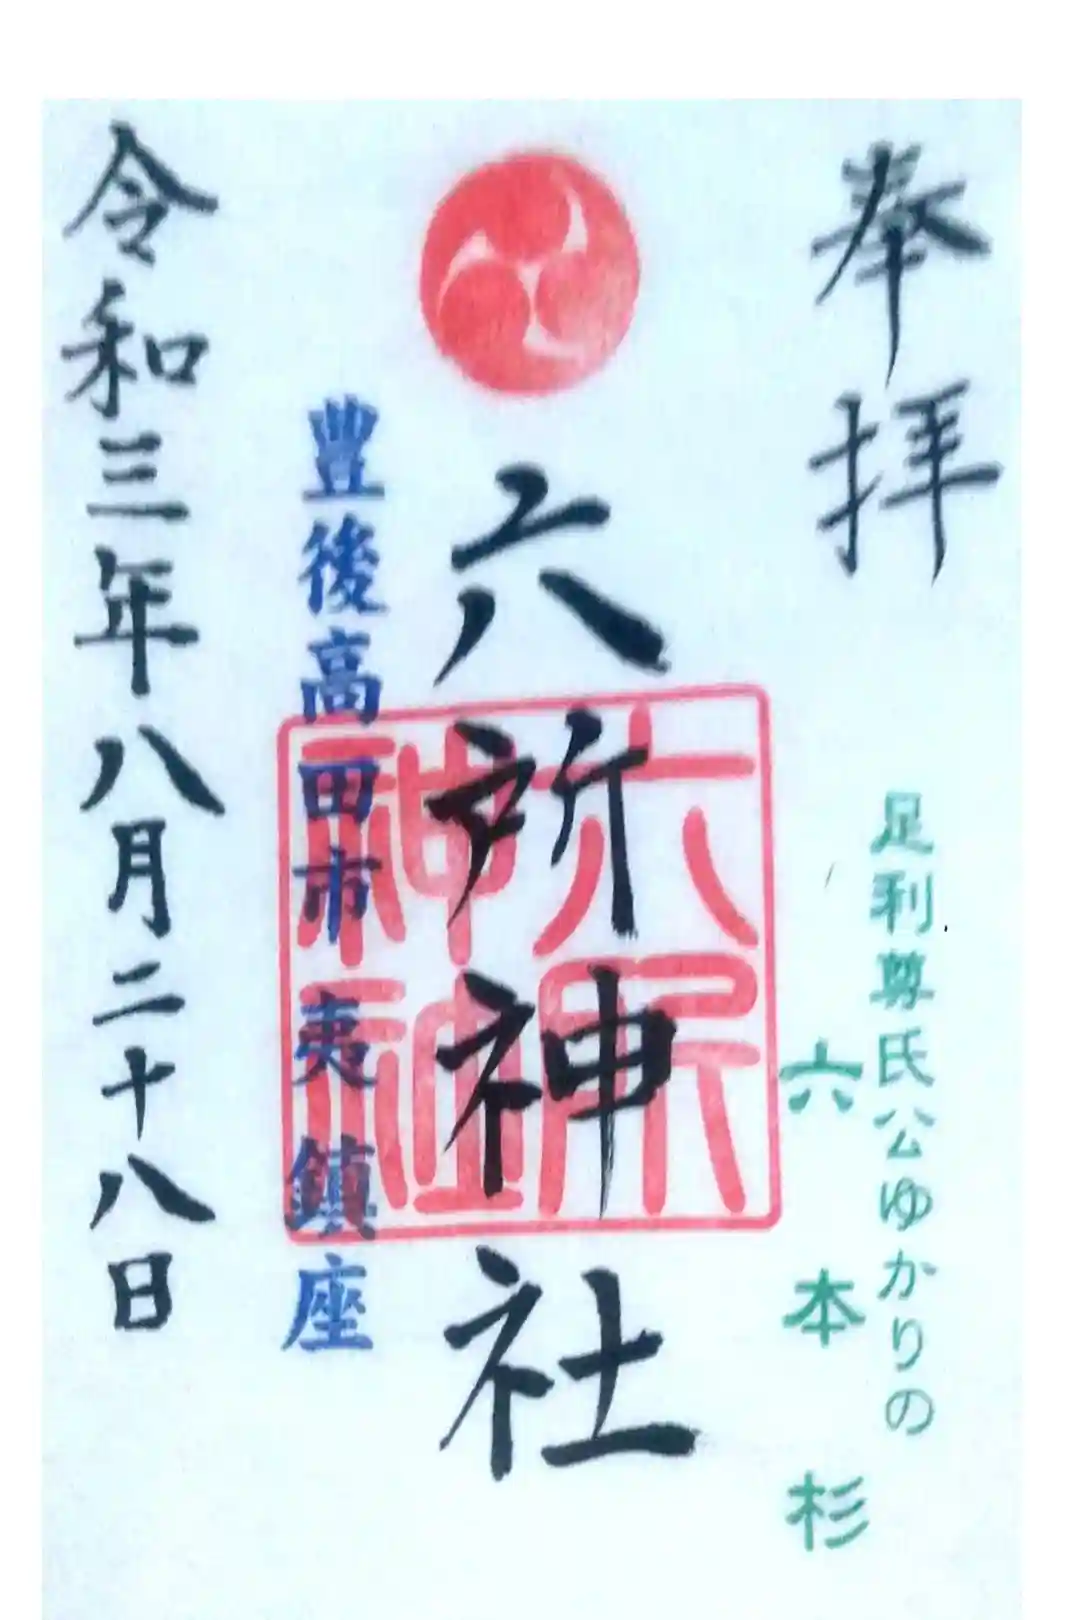 奉拝
足利尊氏公ゆかりの
六本杉
六所神社
六所神社
豊後高田市夷鎮座
令和三年八月二十八日